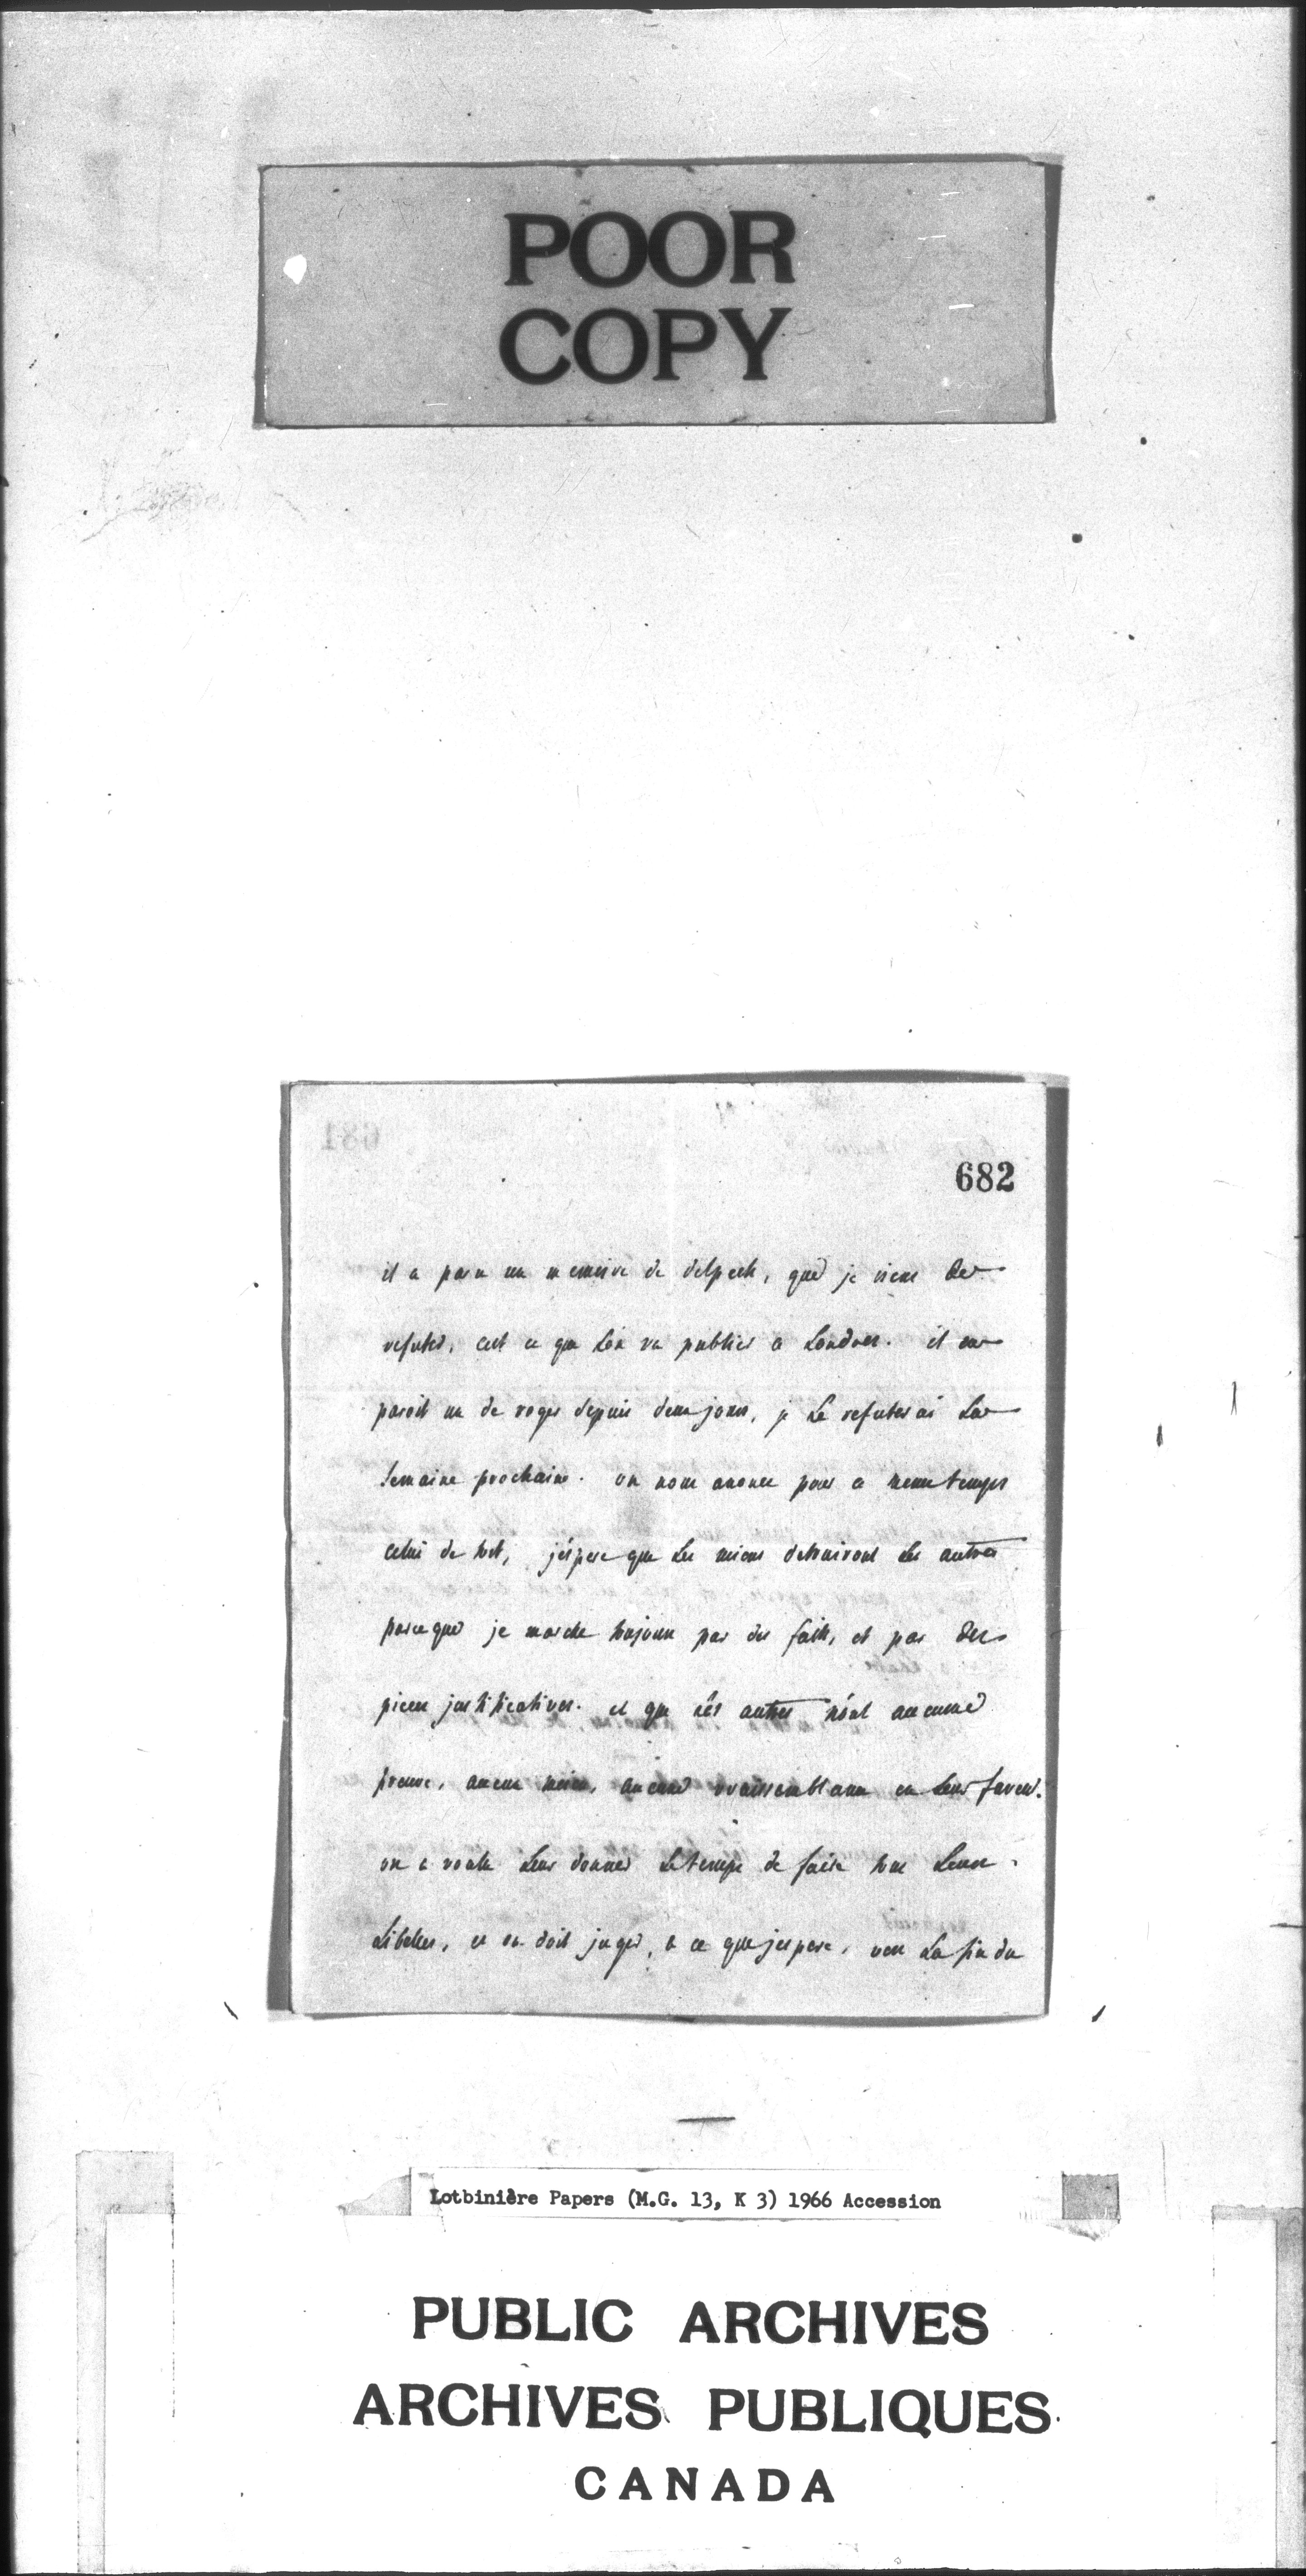 POOR
COPY
682
il a paru un memoire de delpech, que je viens de
refuter, cest ce que L'on va publier a Londres. il en
paroit un de roger depuis deux jours, je Le refuterai La
semaine prochaine. on nous anonce pour ce meme temps
celui de tort, j'espere que Les miens detruiront Les autres
parceque je marche toujours par des faits, et par des
pieces justificatives. et que Les autres n'ont aucune
preuve, aucun aucune vraissemblance en Leur faveur.
on a voulu Leur donner Le temps de faire tous Leurs
Libelles, et on doit juger, a ce que jespere, vers La fin du
Lotbinière Papers (M.G. 13, K 3) 1966 Accession
PUBLIC ARCHIVES
ARCHIVES PUBLIQUES
CANADA